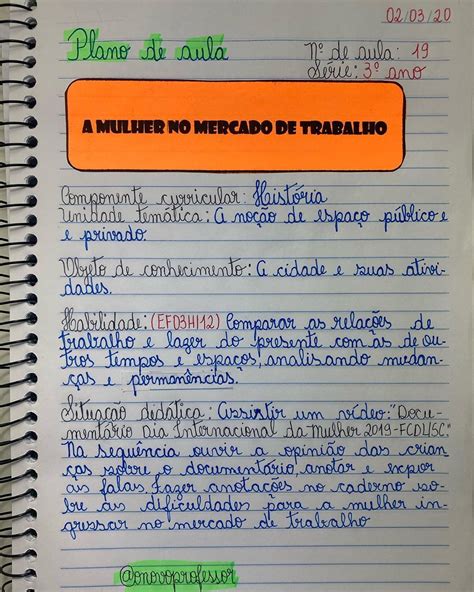 02/03/20
Plano de aula
Nº de aula: 19
Série: 3º ano
A MULHER NO MERCADO DE TRABALHO
Componente curricular: História
Unidade temática: A noção de espaço público e
e privado.
Objeto de conhecimento: A cidade e suas ativi-
dades.
Habilidade: (EF03HI12) Comparar as relações de
trabalho e lazer do presente com as de ou-
tros tempos e espaços, analisando mudan-
ças e permanências.
Situação didática: Assistir um vídeo: "Docu-
mentário Dia Internacional da Mulher 2019-FCDL/SC."
Na sequência ouvir a opinião das crian-
ças sobre o documentário, anotar e expor
as falas. Fazer anotações no caderno so-
bre as dificuldades para a mulher in-
gressar no mercado de trabalho
@onovoprofessor